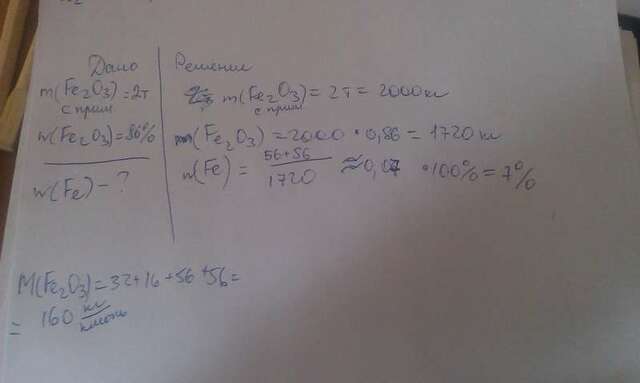 Дано
m(Fe2O3) = 2т
с прим
w(Fe2O3) = 86%
w(Fe) - ?
Решение
m(Fe2O3) = 2т = 2000кг
с прим
m(Fe2O3) = 2000 · 0,86 = 1720 кг
w(Fe) = 56+56 / 1720 ≈ 0,07 · 100% = 7%
M(Fe2O3) = 32+16+56+56 =
= 160 кг/кмоль